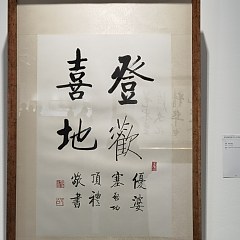 登歡
喜地
優婆
塞啓功
頂禮
敬書